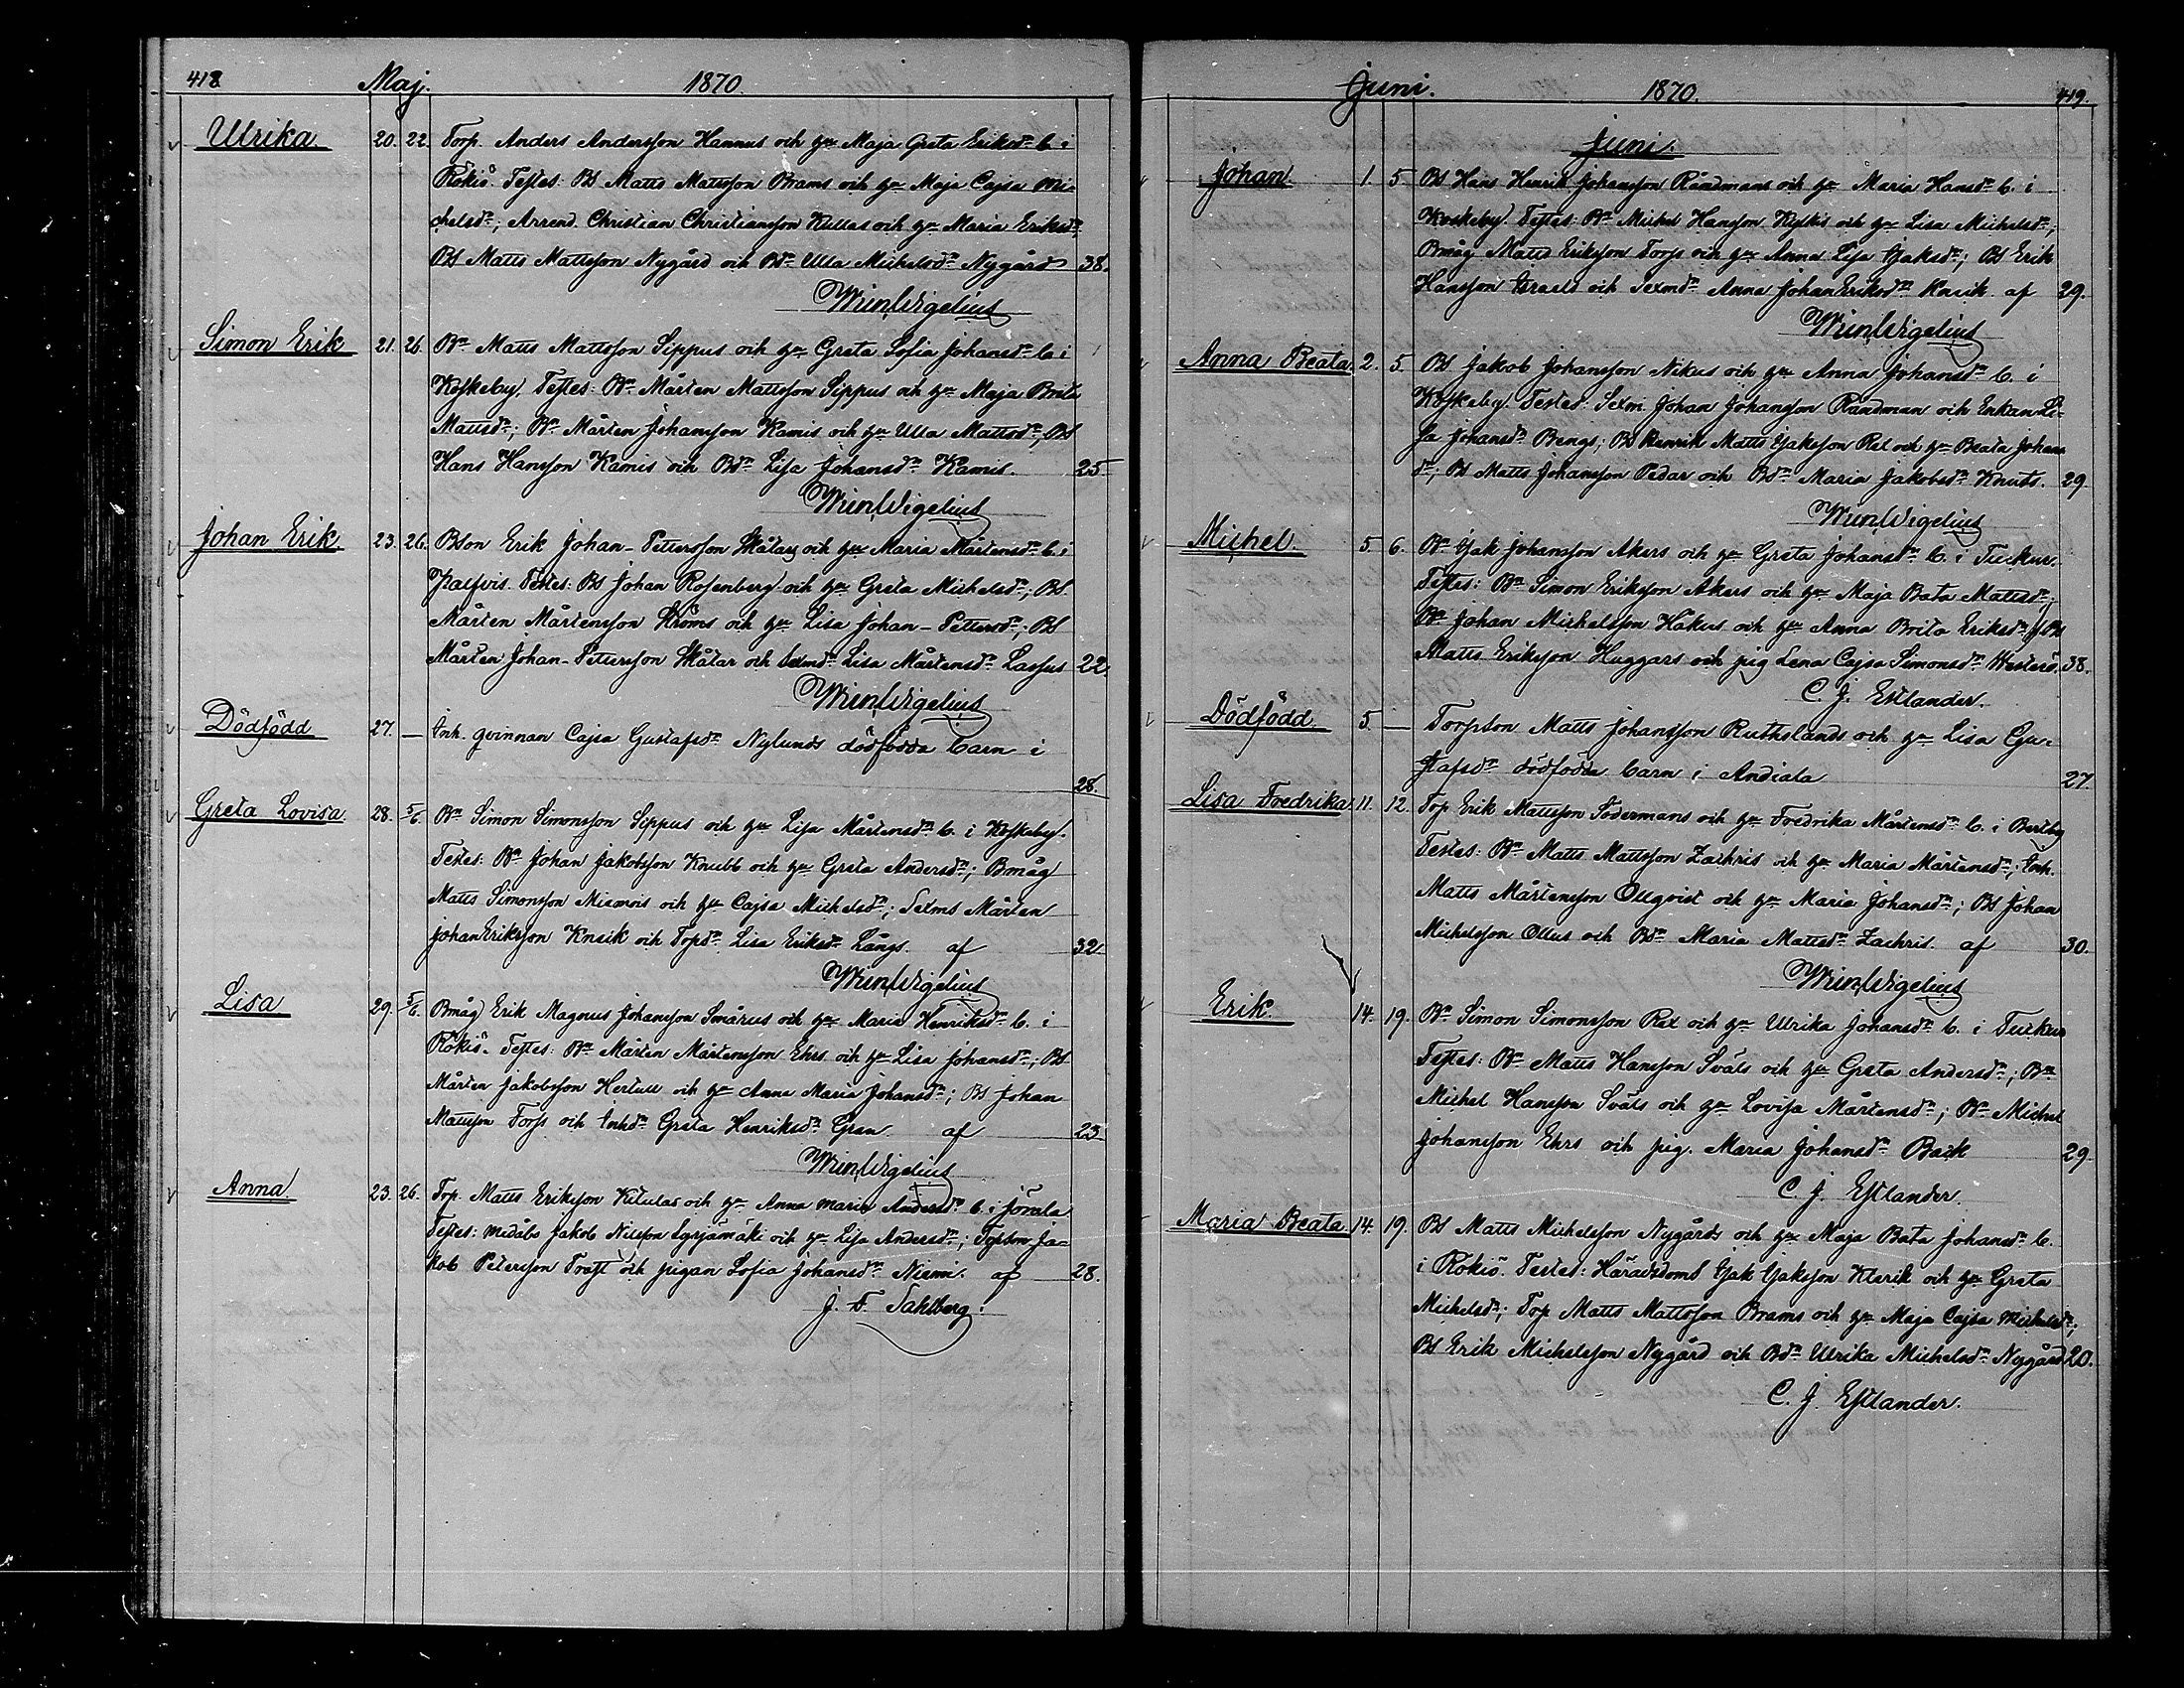 418 Maj. 1870.
Ulrika 20. 22. Torp. Anders Andersson Hannus och hu Maja Greta Eriksdr b. i
Rökiö. Testes: Bs Matts Mattsson Brams och hu Maja Cajsa Mi-
chelsdr; Arrend. Christian Christiansson Kullas och hu Maria Eriksdr,
Bs Matts Mattsson Nygård och Bdr Ulla Michelsdr Nygård 38.
Wm Wigelius
Simon Erik 21. 26. Bn Matts Mattsson Sippus och hu Greta Sofia Johansdr b. i
Koskeby. Testes: Bn Mårten Mattsson Sippus och hu Maja Brita
Mattsdr; Bn Mårten Johansson Kamis och hu Ulla Mattsdr, Bs
Hans Hansson Kamis och Bdr Lisa Johansdr Kamis. 25
Wm Wigelius
Johan Erik 23. 26. Bson Erik Johan-Pettersson Skåtar och hu Maria Mårtensdr b. i
Palfvis. Testes: Bs Johan Rosenberg och hu Greta Michelsdr; Bs.
Mårten Mårtensson Ströms och hu Lisa Johan-Pettersdr; Bs
Mårten Johan-Pettersson Skåtar och Sexmdr Lisa Mårtensdr Lassus 22.
Wm Wigelius
Dödfödd 27. — Inh. qvinnan Cajsa Gustafsdr Nylunds dödfödda barn i
28.
Greta Lovisa 28. 5/6. Bn Simon Simonsson Sippus och hu Lisa Mårtensdr b. i Koskeby.
Testes: Bn Johan Jakobsson Knubb och hu Greta Andersdr; Bmåg
Matts Simonsson Miemois och hu Cajsa Michelsdr; Sexms Mårten
JohanEriksson Kneik och Topdr Lisa Eriksdr Långs. af 32.
Wm Wigelius
Lisa 29. 5/6. Bmåg Erik Magnus Johansson Smårus och hu Maria Henriksdr b. i
Rökiö. Testes: Bn Mårten Mårtensson Ehrs och hu Lisa Johansdr; Bs
Mårten Jakobsson Hertull och hu Anna Maria Johansdr; Bs Johan
Mattsson Fors och Inhdr Greta Henriksdr Gran. af 23
Wm Wigelius
Anna 23. 26. Trp. Matts Eriksson Kitulas och hu Anna Maria Andersdr b. i Jörala
Testes: Medåbo Jakob Nilsson Syrjämäki och hu Lisa Andersdr; Topson Ja-
kob Petersson Trast och pigan Sofia Johansdr Niemi. af 28.
J. F. Sahlberg.
Juni. 1870. 419.
Juni.
Johan 1. 5. Bs Hans Henrik Johansson Råndmans och hu Maria Hansdr b. i
Koskeby. Testes: Bn Michel Hansson Kyllis och hu Lisa Michelsdr;
Bmåg Matts Eriksson Torfs och hu Anna Lisa Isaksdr; Bs Erik
Hansson Israels och Sexmdr Anna JohanEriksdr Kneik. af 29.
Wm Wigelius
Anna Beata. 2. 5. Bs Jakob Johansson Nikus och hu Anna Johansdr b. i
Koskeby. Testes: Sexm. Johan Johansson Randman och Enkan Li-
sa Johansdr Bengs; Bs Henrik Matts Isaksson Rex och hu Beata Johans
dr; Bs Matts Johansson Pedar och Bdr Maria Jakobsdr Knuts. 29
Wm Wigelius
Michel. 5. 6. Bn Isak Johansson Åkers och hu Greta Johansdr b. i Tuckur.
Testes: Bn Simon Eriksson Åkers och hu Maja Bata Mattsdr;
Bn Johan Michelsson Håkus och hu Anna Brita Eriksdr; Bs
Matts Eriksson Huggars och pig Lena Cajsa Simonsdr Westerö. 38.
C. J. Estlander.
Dödfödd. 5. — Torpson Matts Johansson Ruthslands och hu Lisa Gu-
stafsdr dödfödda barn i Andiala 27.
Lisa Fredrika. 11. 12. Top Erik Mattsson Södermans och hu Fredrika Mårtensdr b. i Bertby
Testes: Bn Matts Mattsson Zachris och hu Maria Mårtensdr; Inh.
Matts Mårtensson Ollqvist och hu Maria Johansdr; Bs Johan
Michelsson Ollus och Bdr Maria Mattsdr Zachris. af 30.
Wm Wigelius
Erik. 14. 19. Bn Simon Simonsson Rex och hu Ulrika Johansdr b. i Tuckur
Testes: Bn Matts Hansson Sväls och hu Greta Andersdr; Bn
Michel Hansson Sväls och hu Lovisa Mårtensdr; Bn Michel
Johansson Ehrs och pig. Maria Johansdr Back 29.
C. J. Estlander.
Maria Beata. 14. 19. Bs Matts Michelsson Nygårds och hu Maja Bata Johansdr b.
i Rökiö. Testes: Häradsdoms Isak Isaksson Klerik och hu Greta
Michelsdr; Top Matts Mattsson Brams och hu Maja Cajsa Michelsdr;
Bs Erik Michelsson Nygård och Bdr Ulrika Michelsdr Nygård 20.
C. J. Estlander.